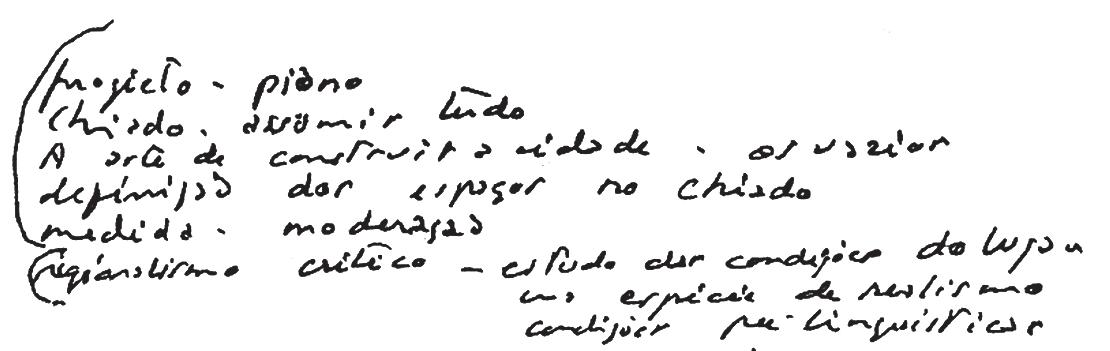 projecto - plano
Chiado. assumir tudo
A arte de construir a cidade - os vazios
definição dos espaços no Chiado
medida - moderação
regionalismo crítico - estudo das condições do lugar
uma espécie de realismo
condições pré-linguísticas